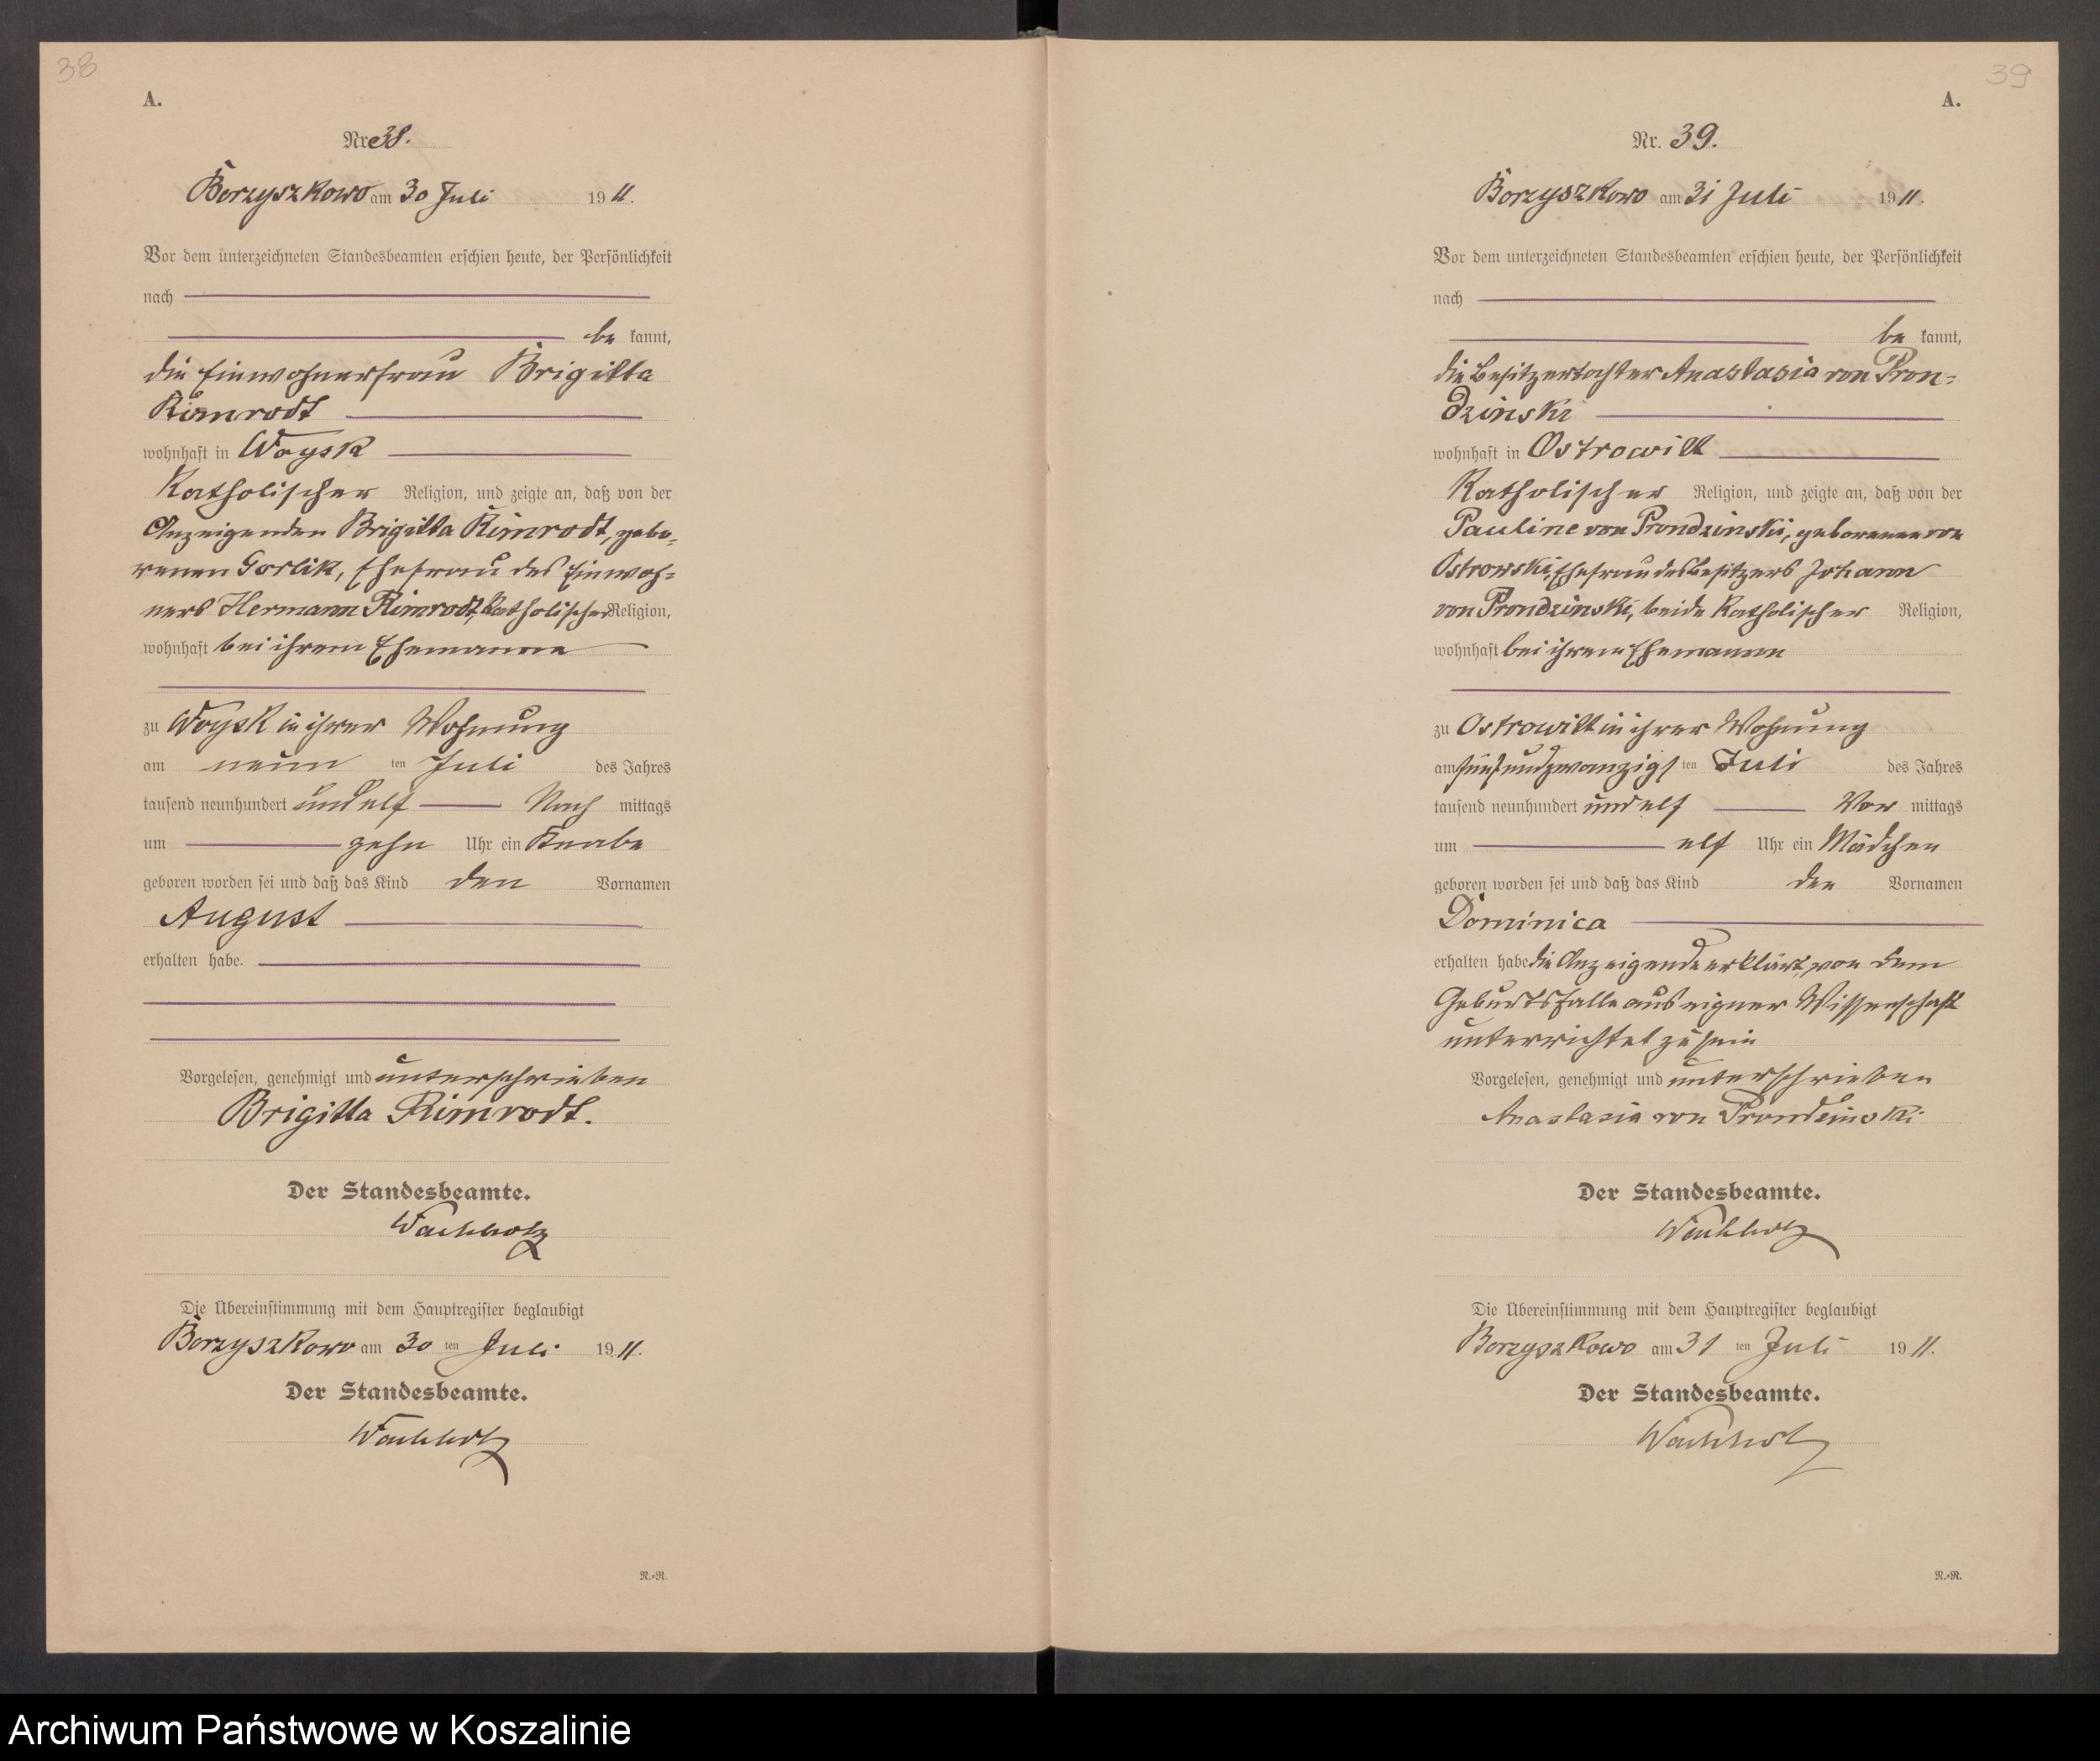 38
A.
Nr 38.
Borzyszkowo am 30 Juli 1911.
Vor dem unterzeichneten Standesbeamten erschien heute, der Persönlichkeit
nach
be kannt,
die Einwohnerfrau Brigitta
Rimrodt
wohnhaft in Woysk
Katholischer Religion, und zeigte an, daß von der
Anzeigenden Brigitta Rimrodt, gebo-
renen Gorlik, Ehefrau des Einwoh-
ners Hermann Rimrodt, Katholischer Religion,
wohnhaft bei ihrem Ehemanne
zu Woysk in ihrer Wohnung
am neun ten Juli des Jahres
tausend neunhundert und elf Nach mittags
um zehn Uhr ein Knabe
geboren worden sei und daß das Kind den Vornamen
August
erhalten habe.
Vorgelesen, genehmigt und unterschrieben
Brigitta Rimrodt.
Der Standesbeamte.
Wachholz
Die Übereinstimmung mit dem Hauptregister beglaubigt
Borzyszkowo am 30 ten Juli 1911.
Der Standesbeamte.
Wachholz
N.-R.
39
A.
Nr. 39.
Borzyszkowo am 31 Juli 1911.
Vor dem unterzeichneten Standesbeamten erschien heute, der Persönlichkeit
nach
be kannt,
die Besitzertochter Anastasia von Pron-
dzinski
wohnhaft in Ostrowitt
Katholischer Religion, und zeigte an, daß von der
Pauline von Prondzinski, geborenen von
Ostrowski, Ehefrau des Besitzers Johann
von Prondzinski, beide Katholischer Religion,
wohnhaft bei ihrem Ehemanne
zu Ostrowitt in ihrer Wohnung
am fünfundzwanzigs ten Juli des Jahres
tausend neunhundert und elf Vor mittags
um elf Uhr ein Mädchen
geboren worden sei und daß das Kind den Vornamen
Dominica
erhalten habe die Anzeigende erklärt, von dem
Geburtsfalle aus eigner Wissenschaft
unterrichtet zu sein
Vorgelesen, genehmigt und unterschrieben
Anastasia von Prondzinski
Der Standesbeamte.
Wachholz
Die Übereinstimmung mit dem Hauptregister beglaubigt
Borzyszkowo am 31 ten Juli 1911.
Der Standesbeamte.
Wachholz
N.-R.
Archiwum Państwowe w Koszalinie